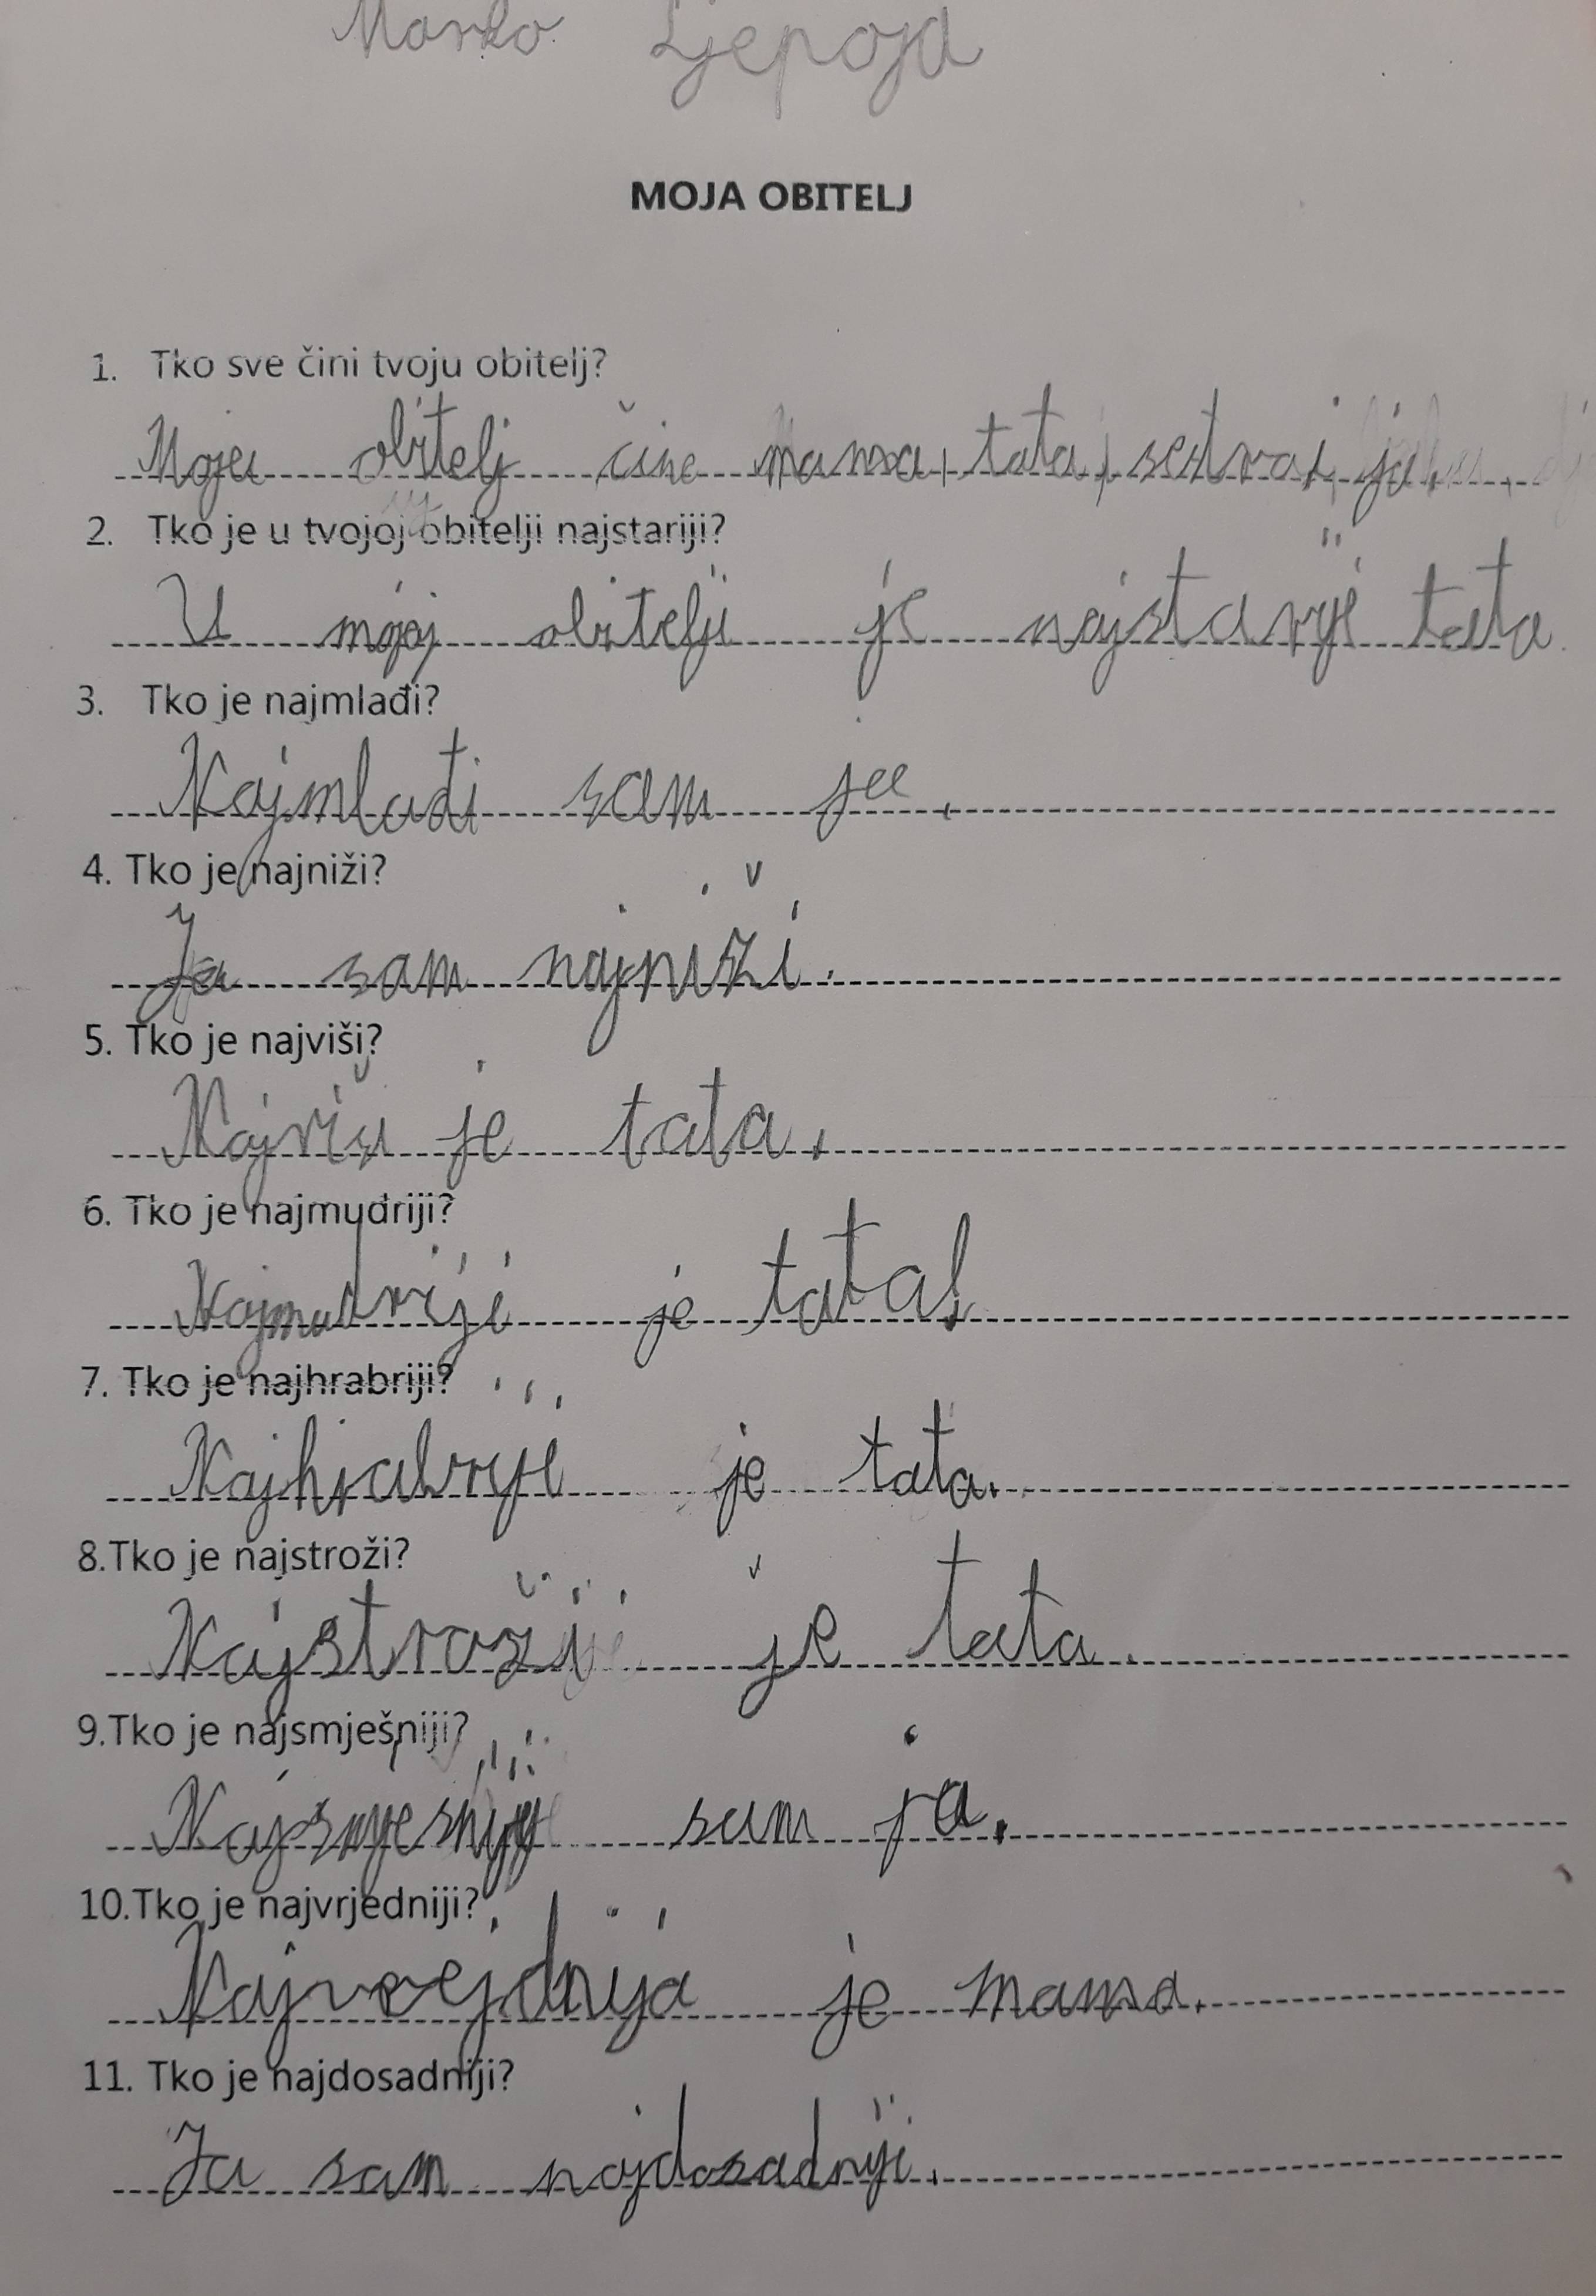 Marko Ljepoja
MOJA OBITELJ
1. Tko sve čini tvoju obitelj?
Moja obitelj čine mama, tata, sestra i ja.
2. Tko je u tvojoj obitelji najstariji?
U mojoj obitelji je najstariji tata.
3. Tko je najmlađi?
Najmlađi sam ja.
4. Tko je najniži?
Ja sam najniži.
5. Tko je najviši?
Najviši je tata.
6. Tko je najmudriji?
Najmudriji je tata.
7. Tko je najhrabriji?
Najhrabriji je tata.
8.Tko je najstroži?
Najstroži je tata.
9.Tko je najsmješniji?
Najsmješniji sam ja.
10.Tko je najvrjedniji?
Najvrejdnija je mama.
11. Tko je najdosadniji?
Ja sam najdosadniji.